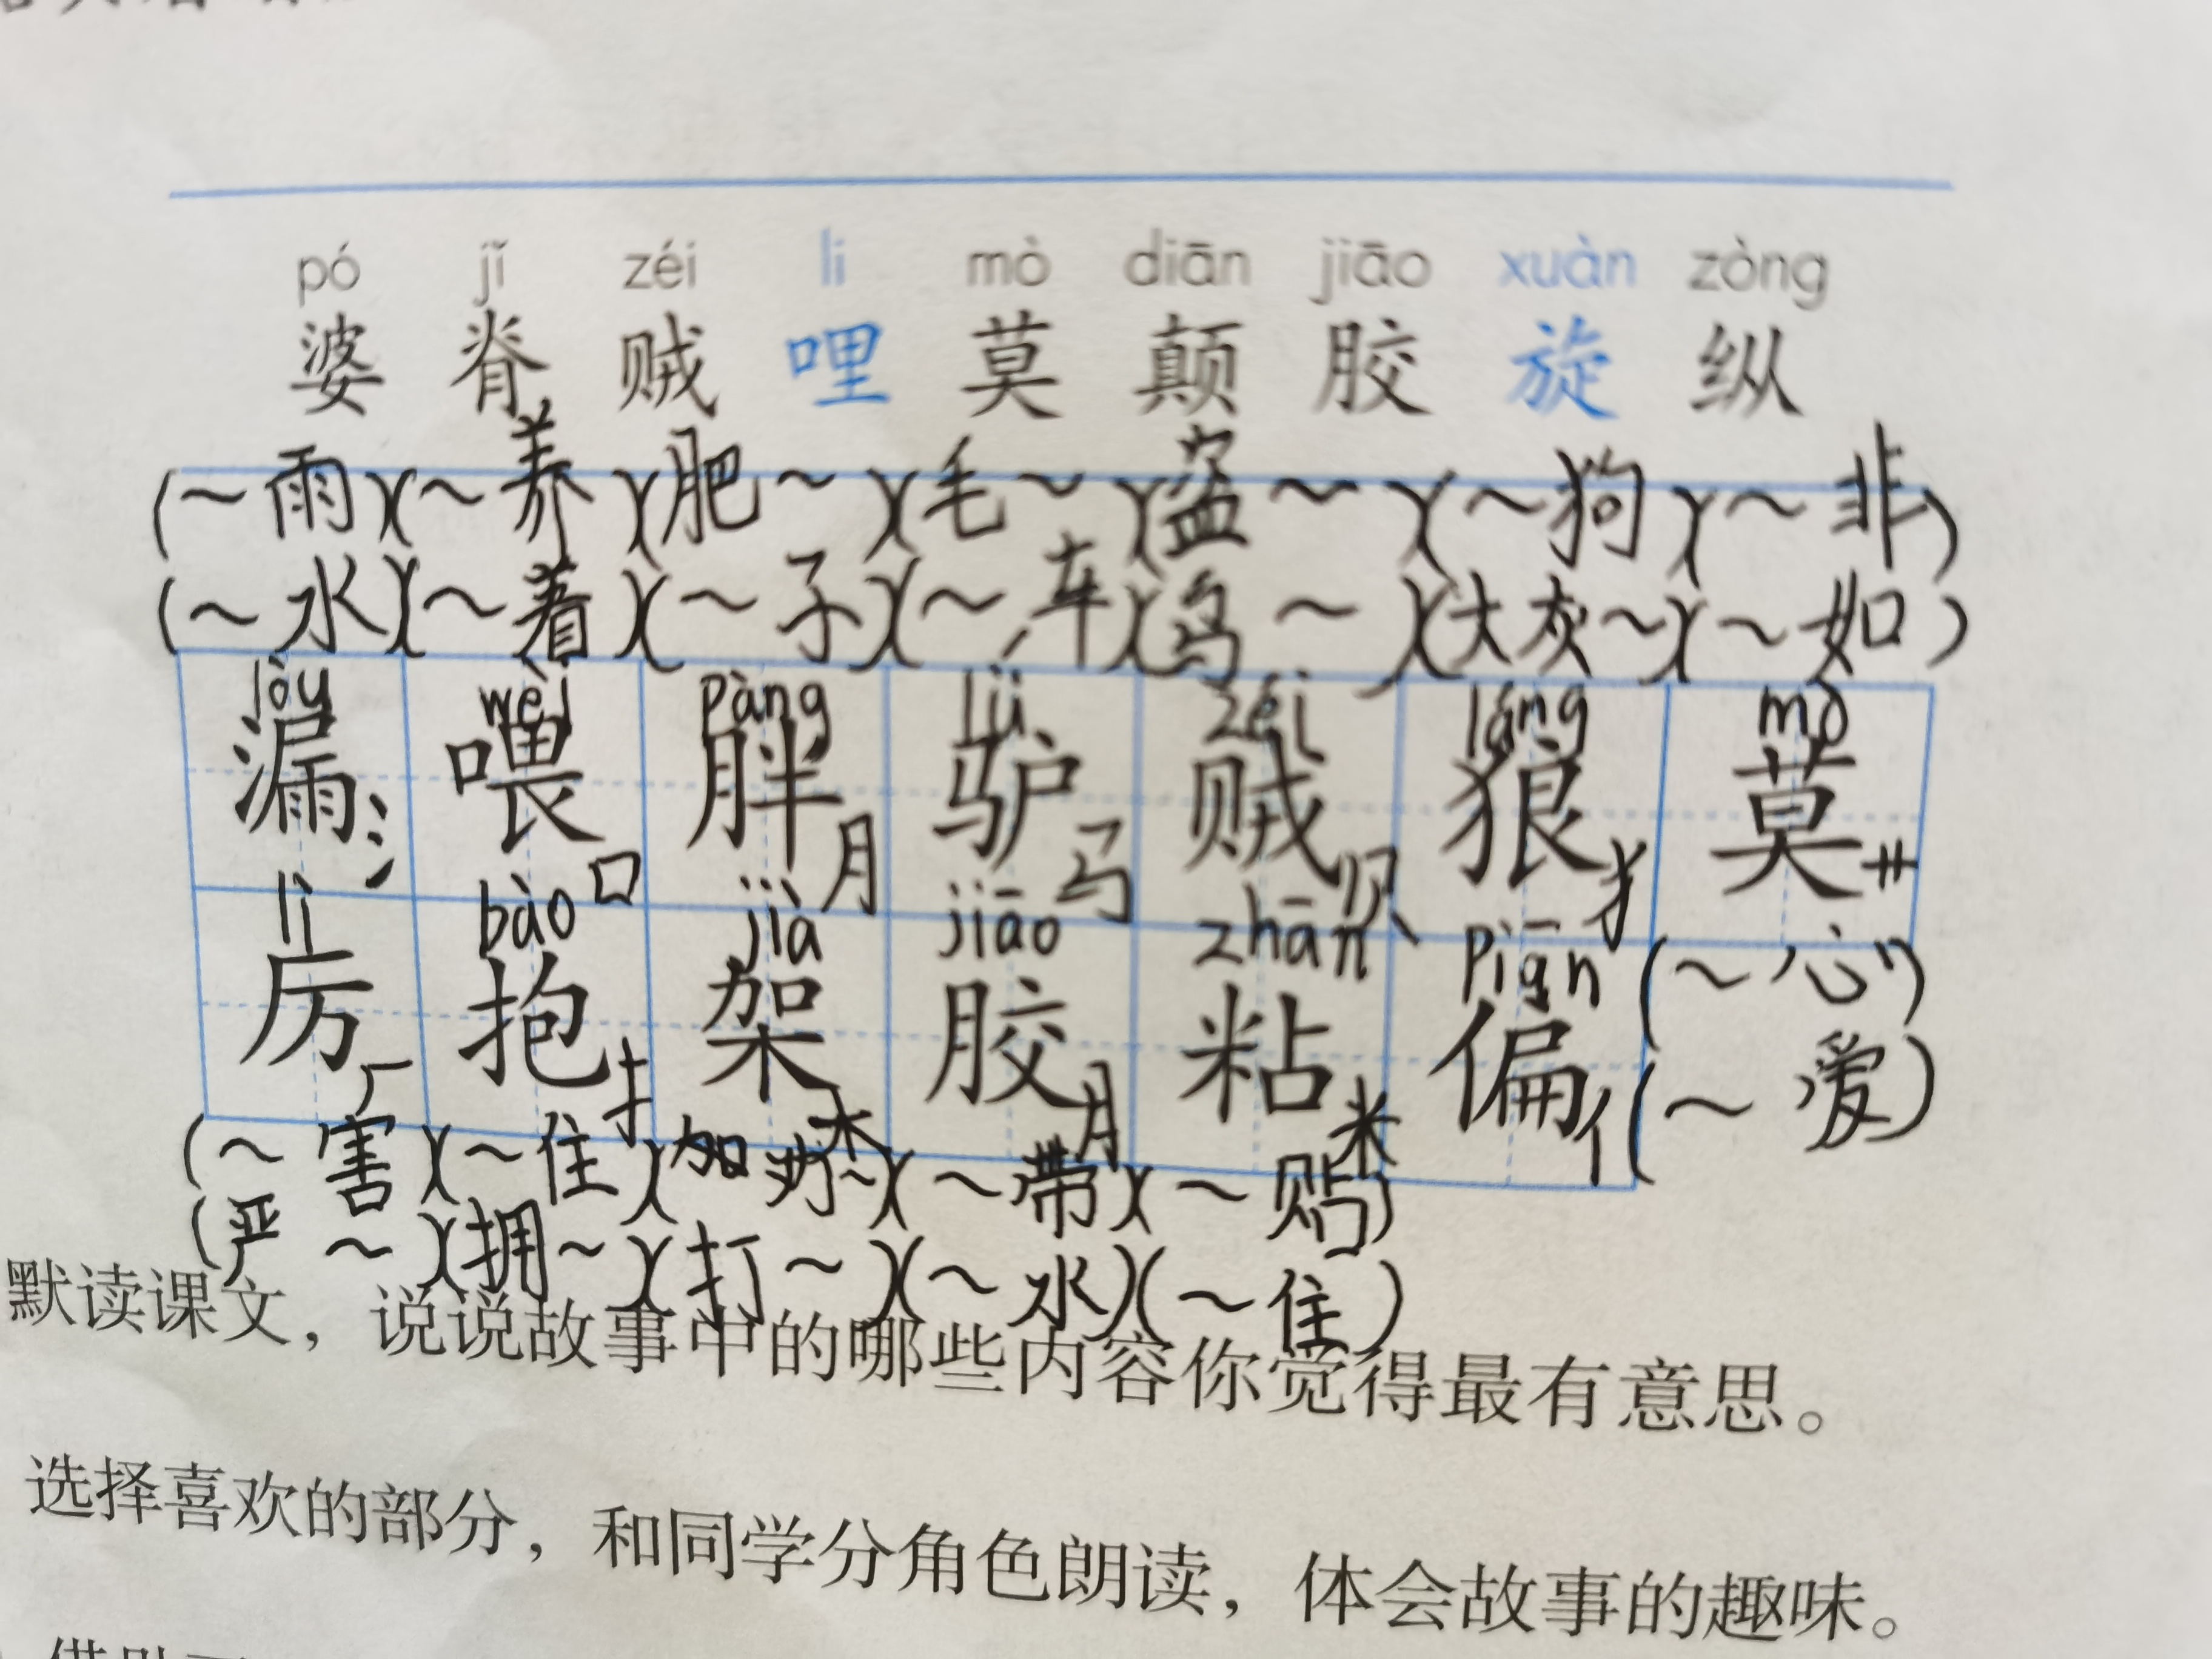 pó jǐ zéi li mò diān jiāo xuàn zòng
婆 脊 贼 哩 莫 颠 胶 旋 纵
(~雨)(~养)(肥~)(毛~)(盗~)(~狗)(~非)
(~水)(~着)(~子)(~车)(乌~)(大灰~)(~如)
lòu wèi pàng lǘ zéi láng mò
漏 喂 胖 驴 贼 狼 莫
氵 口 月 马 贝 犭 艹
lì bào jià jiāo zhān piān (~心)
厉 抱 架 胶 粘 偏 (~爱)
厂 扌 木 月 米 亻
(~害)(~住)(~带)(~贴)
(严~)(拥~)(打~)(~水)(~住)
默读课文，说说故事中的哪些内容你觉得最有意思。
选择喜欢的部分，和同学分角色朗读，体会故事的趣味。